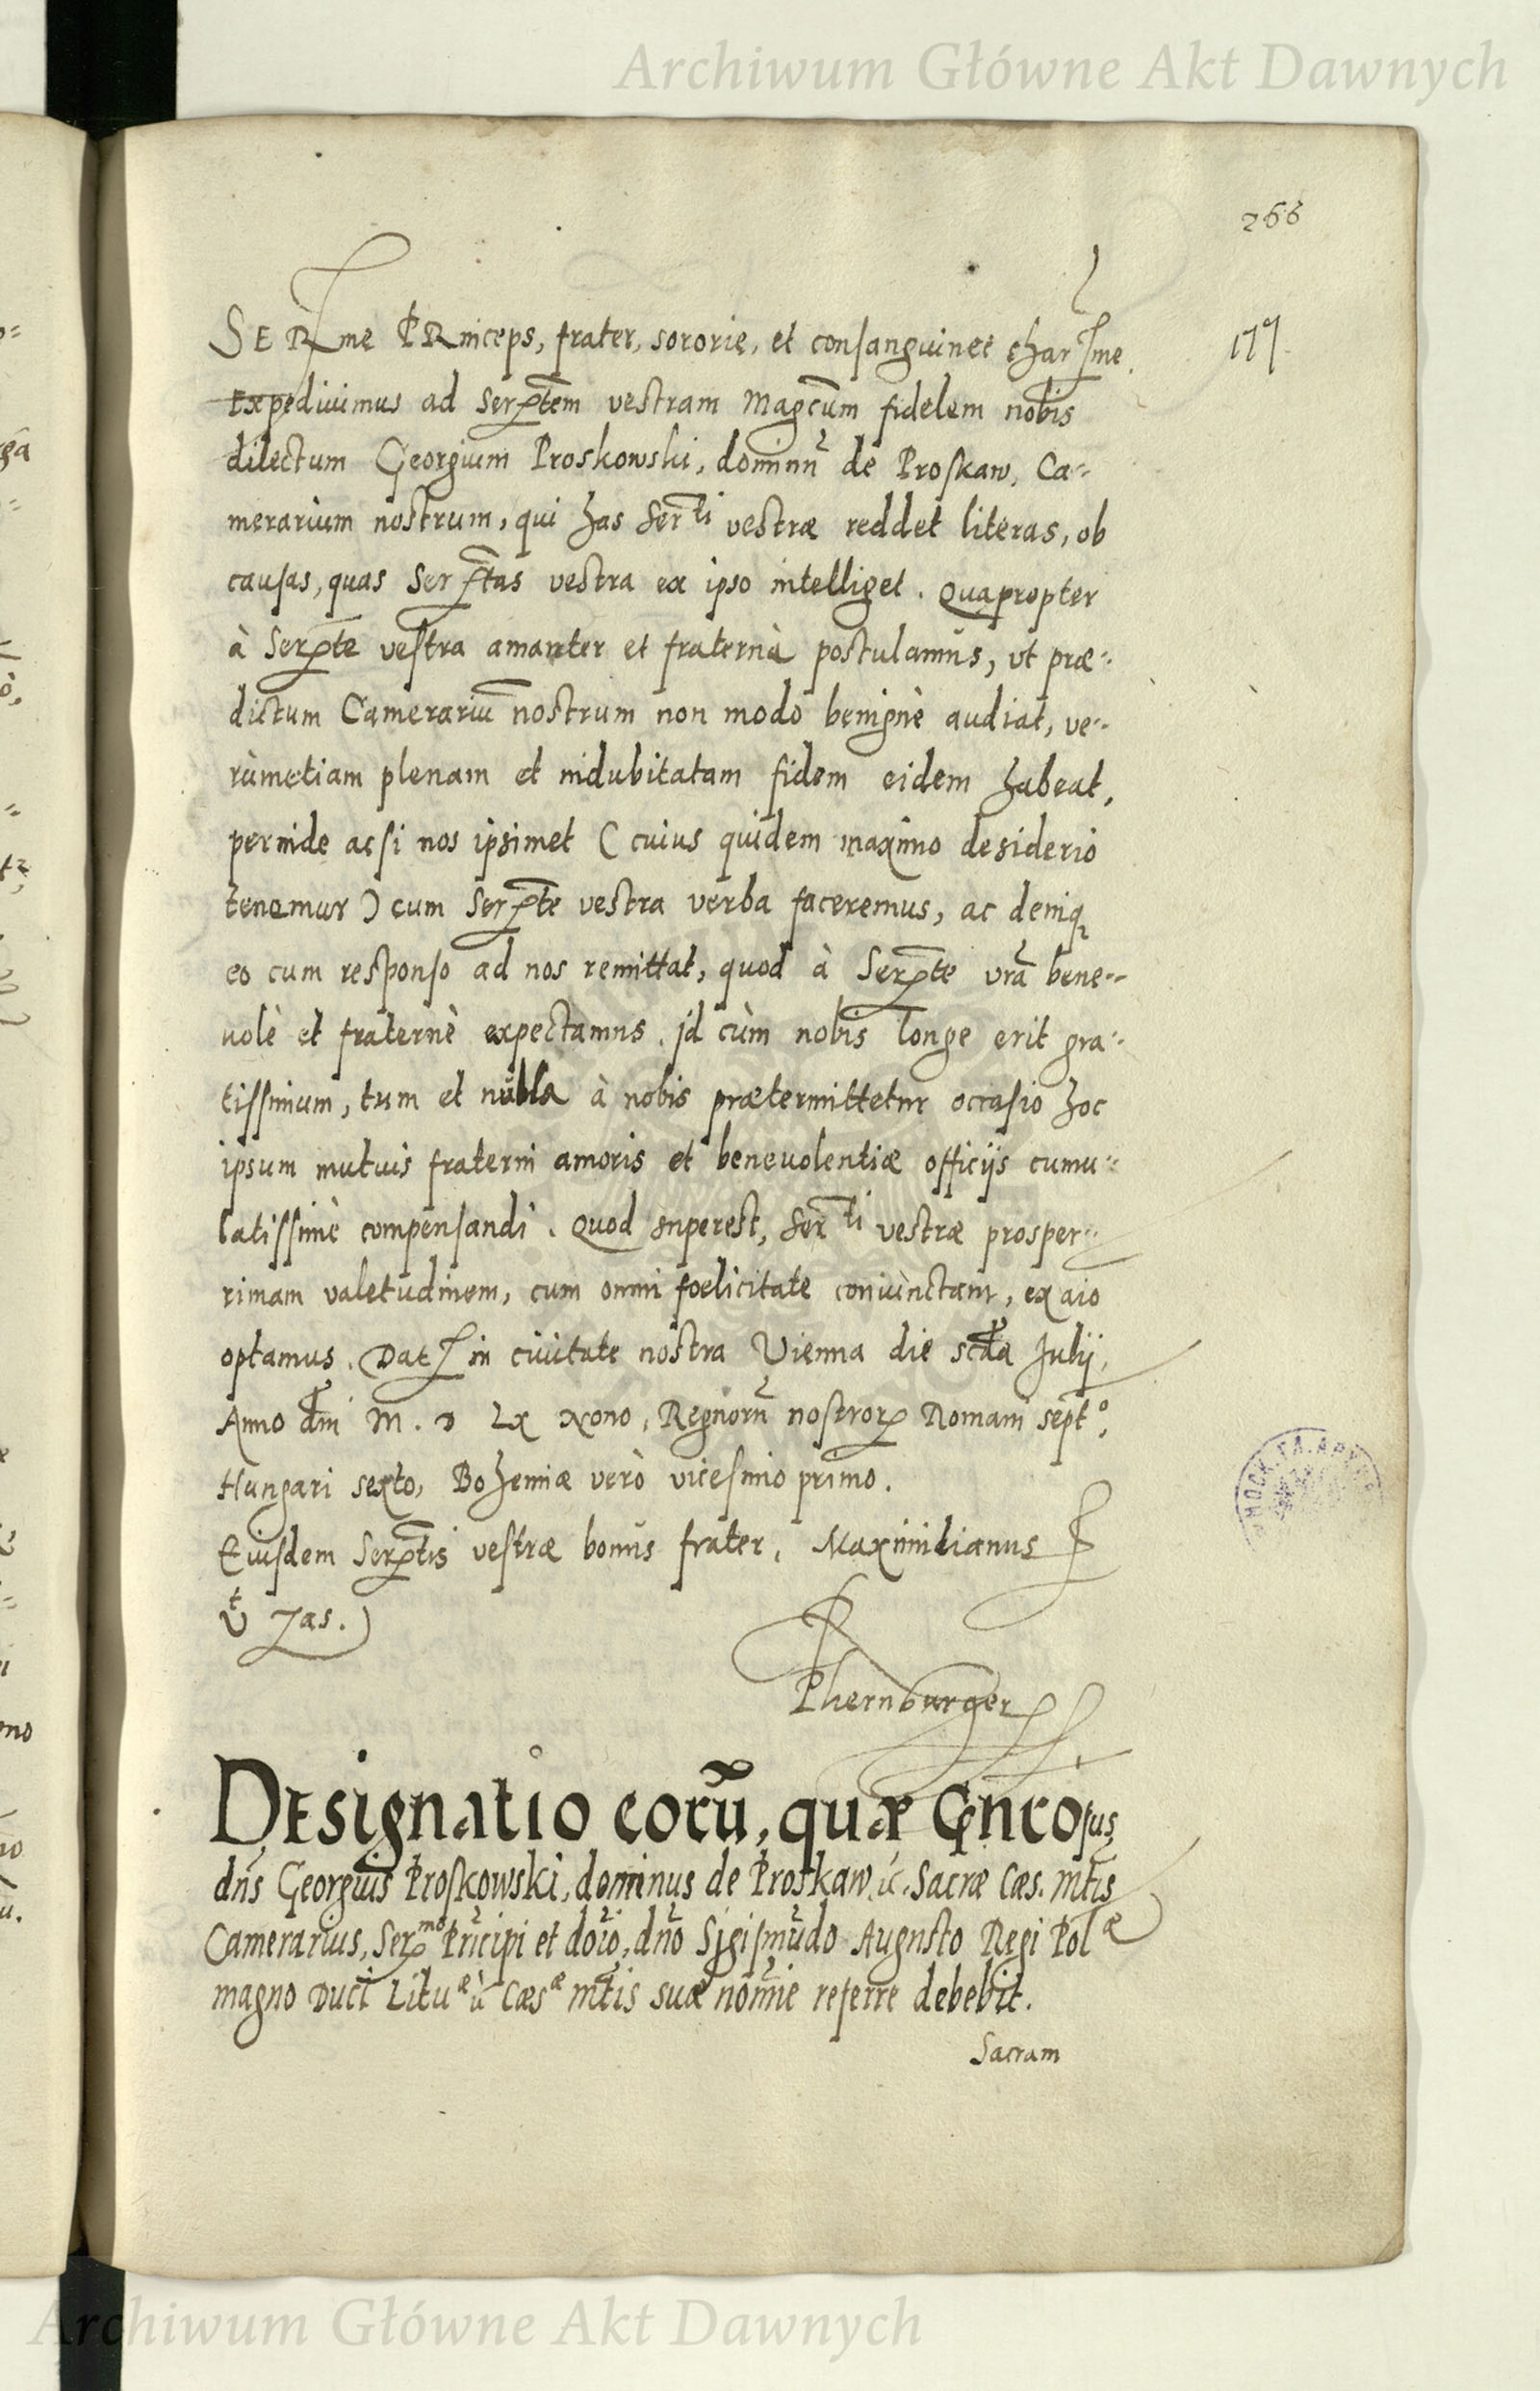 Archiwum Główne Akt Dawnych
266
177.
SERme PRinceps, frater, sororie, et consanguinee charme.
Expediuimus ad Serptem vestram Magcum fidelem nobis
dilectum Georgium Proskowski, dominū de Proskaw, Ca=
merarium nostrum, qui has Serti vestræ reddet literas, ob
causas, quas Sertas vestra ex ipso intelliget. Quapropter
à Serte vestra amanter et fraternè postulamus, vt præ=
dictum Camerariū nostrum non modo benignè audiat, ve=
rùmetiam plenam et indubitatam fidem eidem habeat,
perinde acsi nos ipsimet (cuius quidem maximo desiderio
tenemur) cum Serte vestra verba faceremus, ac deniq
eo cum responso ad nos remittat, quod à Serte vrā bene=
uolè et fraternè expectamus. jd cùm nobis longe erit gra=
tissimum, tum et nulla à nobis prætermittetur occasio hoc
ipsum mutuis fraterni amoris et beneuolentiæ officijs cumu=
latissimè compensandi. Quod superest, Serti vestræ prosper=
rimam valetudinem, cum omni foelicitate coniunctam, ex aio
optamus. Dat in ciuitate nostra Vienna die scda Julij,
Anno dni M. D LX Nono, Regnorū nostrorꝝ Romani septo,
Hungari sexto, Bohemiæ verò vicesimo primo.
Eiusdem Sertis vestræ bonus frater, Maximilianus
Vt Zas.)
Phernburger
DEsignatio eorū, quæ Gnrosus,
dns Georgius Proskowski, dominus de Proskaw, Sacræ Cæs. Mtis
Camerarius, Sermo Principi et dōio, dno Sigismūdo Augusto Regi Polæ
magno Duci Lituæ Cæsæ Mtis suæ nomīe referre debebit.
Sacram
Archiwum Główne Akt Dawnych